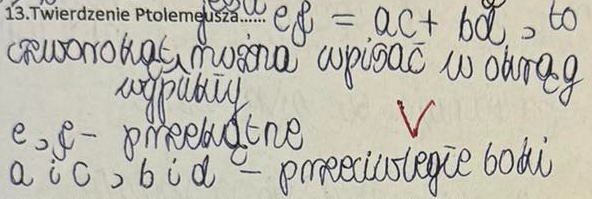 13.Twierdzenie Ptolemeusza...... jeśli ef = ac + bd, to
czworokąt można wpisać w okrąg
wypukły
e, f - przekątne
a i c, b i d - przeciwległe boki